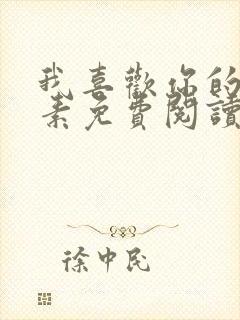 我喜歡你的
素免費閱讀
徐中民